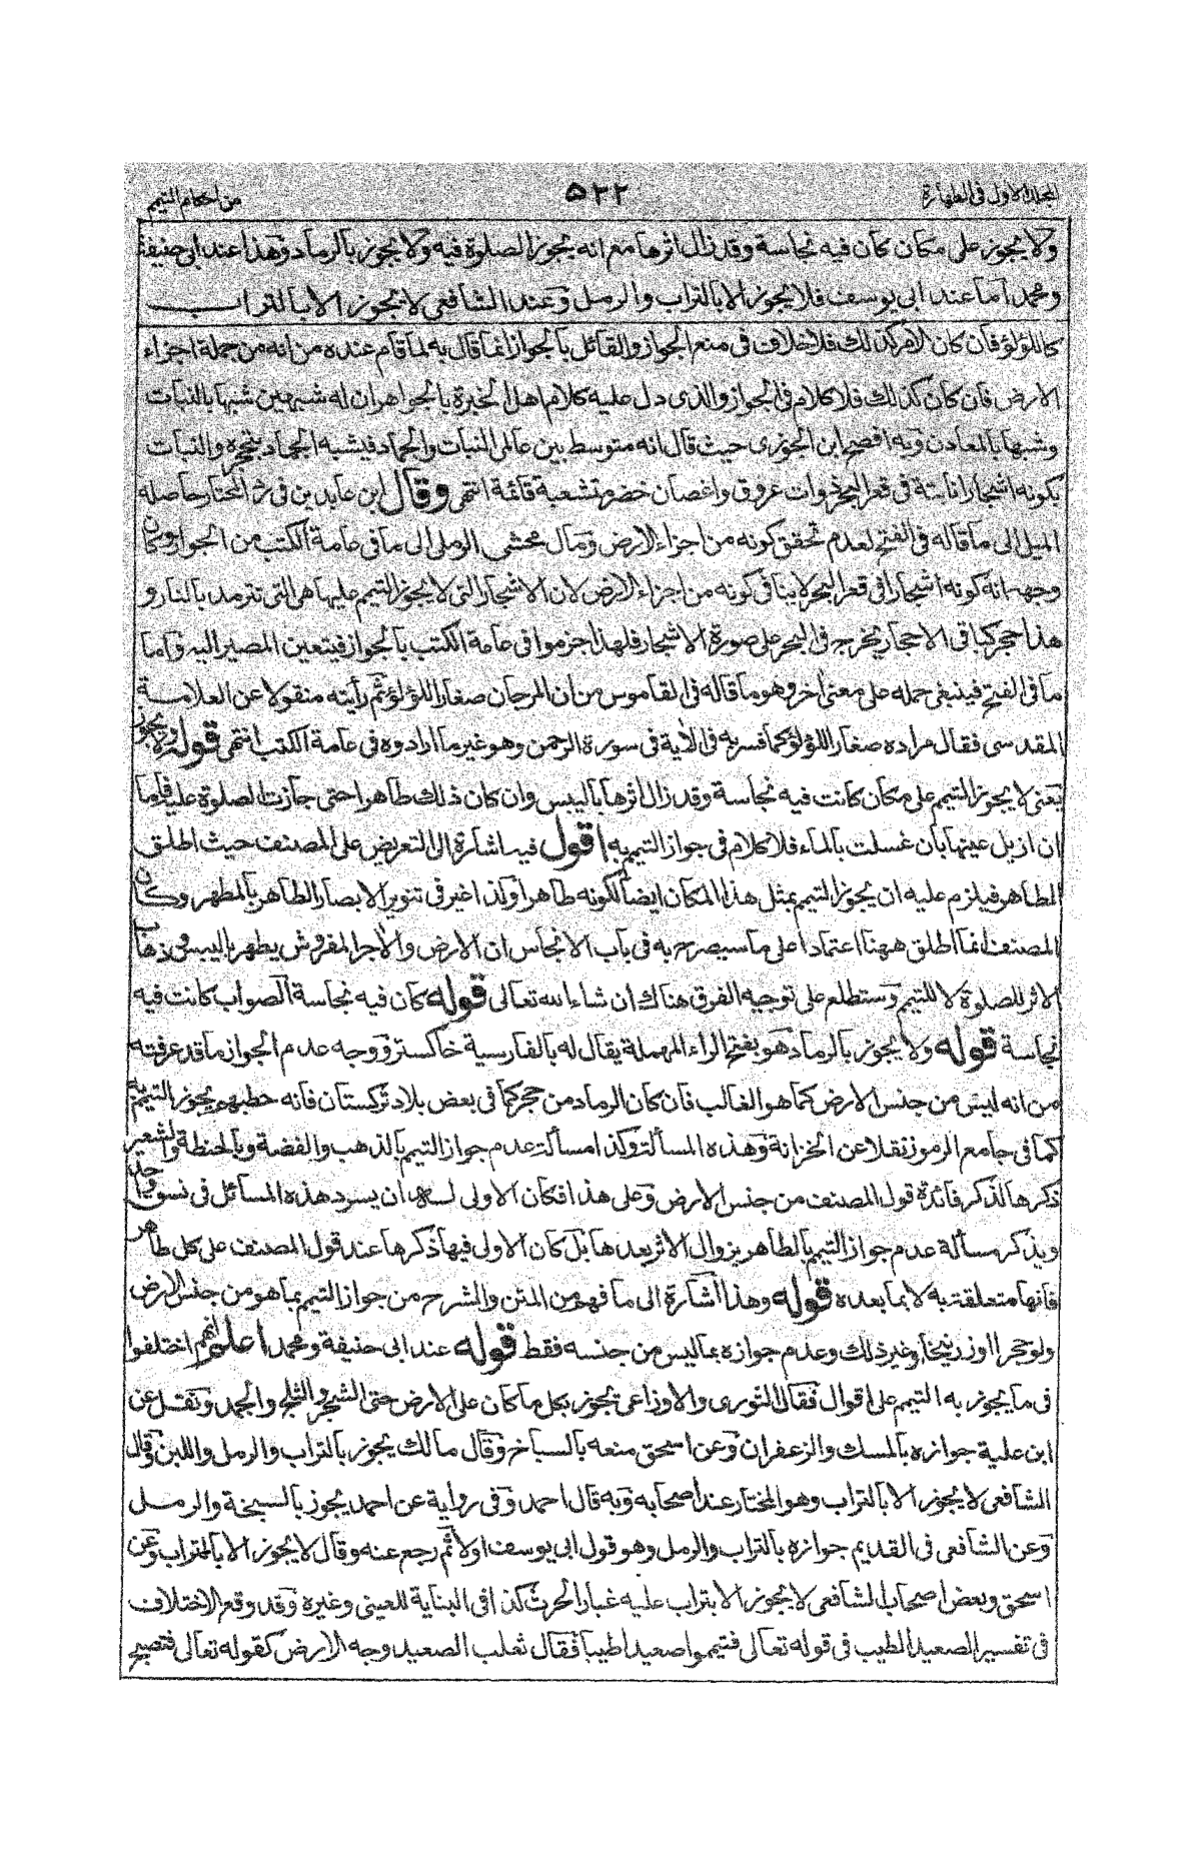 المجلد الاول فى الطهارة
۵۲۲
من احكام التيمم
ولا يجوز على مكان كان فيه نجاسة وقد زال اثرها مع انه يجوز الصلوة فيه ولا يجوز بالرماد وهذا عند ابى حنيفة
ومحمد اما عند ابى يوسف فلا يجوز الا بالتراب والرمل وعند الشافعى لا يجوز الا بالتراب
كاللؤلؤ فان كان الامر كذلك فلا خلاف فى منع الجواز والقائل بالجواز انما قال به لما قام عنده من انه من جملة اجزاء
الارض فان كان كذلك فلا كلام فى الجواز والذى دل عليه كلام اهل الخبرة بالجواهر ان له شبهين شبها بالنبات
وشبها بالمعادن وبه افصح ابن الجوزى حيث قال انه متوسط بين عالمى النبات والجماد فيشبه الجماد بتحجره والنبات
بكونه اشجارا نابتة فى قعر البحر ذوات عروق واغصان خضر متشعبة قائمة انتهى وقال ابن عابدين فى رد المحتار حاصله
الميل الى ما قاله فى الفتح لعدم تحقق كونه من اجزاء الارض ومال محشى الرملى الى ما فى عامة الكتب من الجواز وكان
وجهه انه كونه اشجارا فى قعر البحر لا ينافى كونه من اجزاء الارض لان الاشجار التى لا يجوز التيمم عليها هى التى تترمد بالنار و
هذا حجر كباقى الاحجار يخرج فى البحر على صورة الاشجار فلهذا جزموا فى عامة الكتب بالجواز فيتعين المصير اليه واما
ما فى الفتح فينبغى حمله على معنى اخر وهو ما قاله فى القاموس من ان المرجان صغار اللؤلؤ ثم رأيته منقولا عن العلامة
المقدسى فقال مراده صغار اللؤلؤ كما فسر به فى الاية فى سورة الرحمن وهو غير ما ارادوه فى عامة الكتب انتهى قوله ولا يجوز
يعنى لا يجوز التيمم على مكان كانت فيه نجاسة وقد زال اثرها باليبس وان كان ذلك طاهرا حتى جازت الصلوة عليه فاما
ان ازيل عينها بان غسلت بالماء فلا كلام فى جواز التيمم به اقول فيه اشارة الى التعريض على المصنف حيث اطلق
الطاهر فيلزم عليه ان يجوز التيمم بمثل هذا المكان ايضا لكونه طاهرا ولذا غير فى تنوير الابصار الطاهر بالمطهر وكان
المصنف انما اطلق ههنا اعتمادا على ما سيصرح به فى باب الانجاس ان الارض والاجر المفروش يطهر باليبس وذهاب
الاثر للصلوة لا للتيمم وستطلع على توجيه الفرق هناك ان شاء الله تعالى قوله كان فيه نجاسة الصواب كانت فيه
نجاسة قوله ولا يجوز بالرماد هو بفتح الراء المهملة يقال له بالفارسية خاكستر ووجه عدم الجواز ما قد عرفته
من انه ليس من جنس الارض كما هو الغالب فان كان الرماد من حجر كما فى بعض بلاد تركستان فانه حطبهم يجوز التيمم به
كما فى جامع الرموز نقلا عن الخزانة وهذه المسألة وكذا مسألة عدم جواز التيمم بالذهب والفضة وبالحنطة والشعير
ذكرها لذكر فائدة قول المصنف من جنس الارض وعلى هذا فكان الاولى له ان يسرد هذه المسائل فى نسق واحد
ويذكر مسألة عدم جواز التيمم بالطاهر بزوال الاثر بعدها بل كان الاولى فيها ذكرها عند قول المصنف على كل طاهر
فانها متعلقة به لا بما بعده قوله وهذا اشارة الى ما فهم من المتن والشرح من جواز التيمم بما هو من جنس الارض
ولو حجرا او زرنيخا وغير ذلك وعدم جوازه بما ليس من جنسه فقط قوله عند ابى حنيفة ومحمد اعلم انهم اختلفوا
فى ما يجوز به التيمم على اقوال فقال الثورى والاوزاعى تجوز بكل ما كان على الارض حتى الشجر والثلج والجمد ونقل عن
ابن علية جوازه بالمسك والزعفران وعن اسحق منعه بالسباخ وقال مالك يجوز بالتراب والرمل واللبن وقال
الشافعى لا يجوز الا بالتراب وهو المختار عند اصحابه وبه قال احمد وفى رواية عن احمد يجوز بالسبخة والرمل
وعن الشافعى فى القديم جوازه بالتراب والرمل وهو قول ابى يوسف اولا ثم رجع عنه وقال لا يجوز الا بالتراب وعن
اسحق وبعض اصحاب الشافعى لا يجوز الا بتراب عليه غبار الحرث كذا فى البناية للعينى وغيره وقد وقع الاختلاف
فى تفسير الصعيد الطيب فى قوله تعالى فتيمموا صعيدا طيبا فقال ثعلب الصعيد وجه الارض كقوله تعالى فتصبح